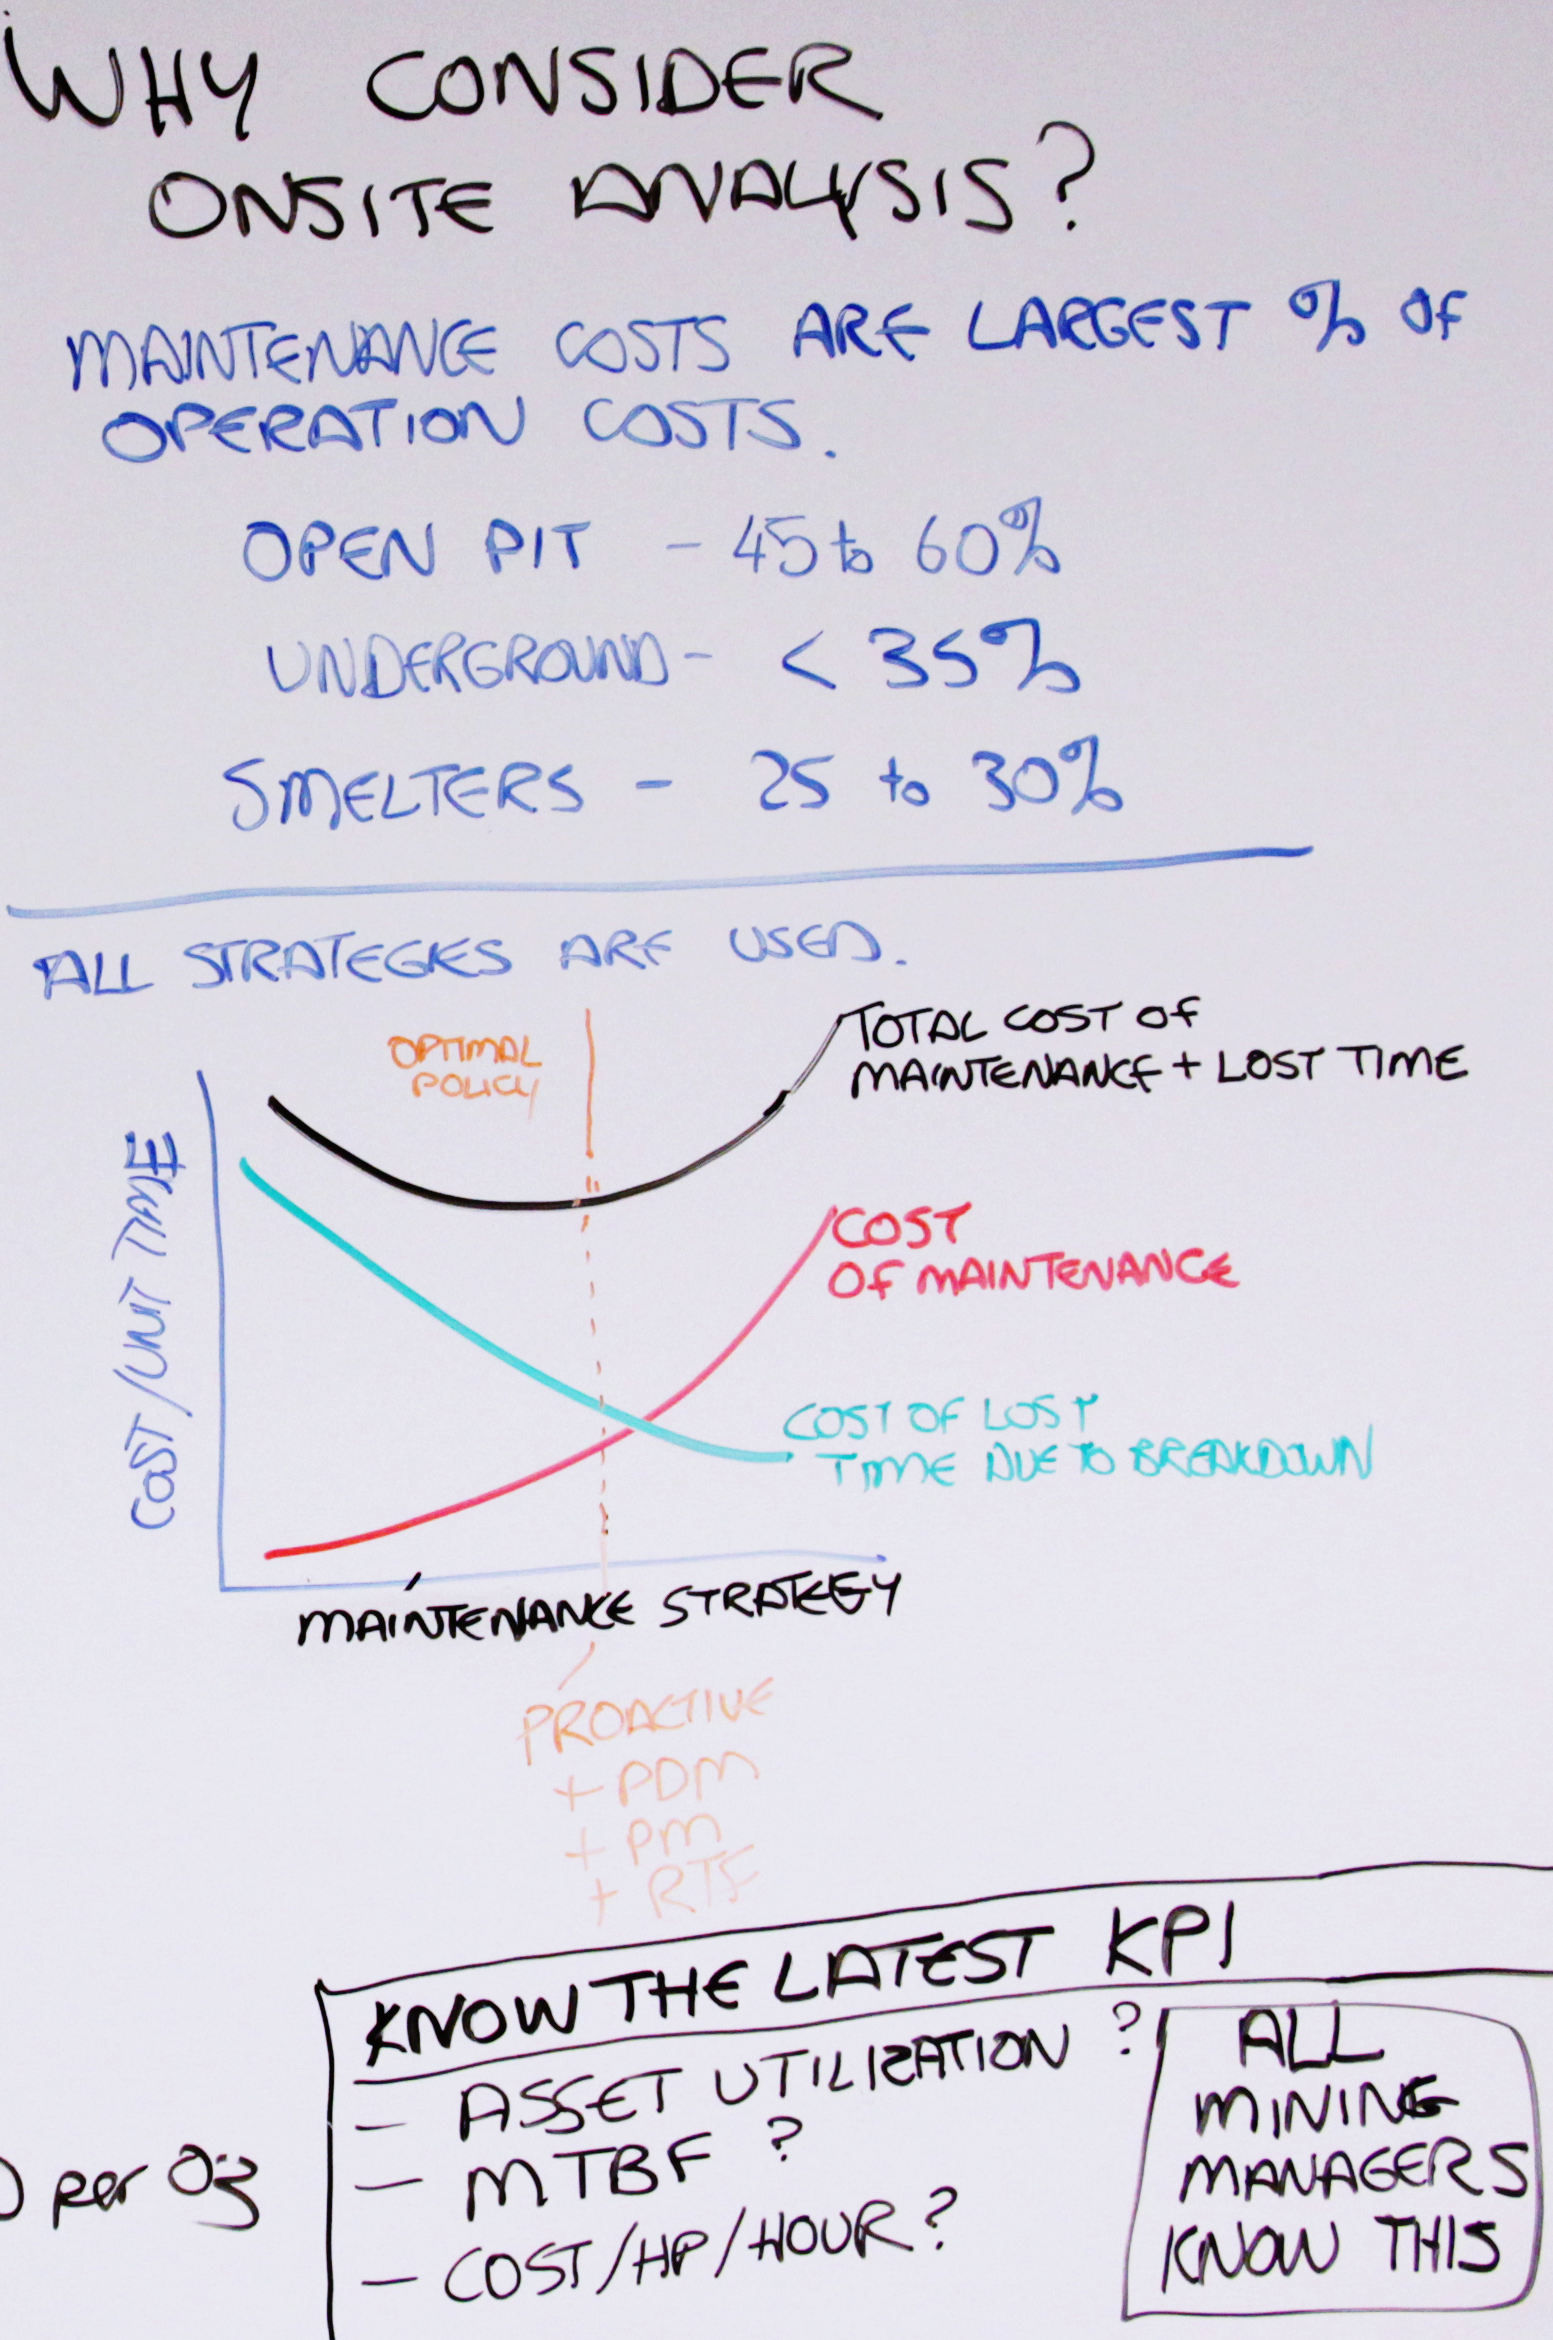 WHY CONSIDER
ONSITE ANALYSIS?
MAINTENANCE COSTS ARE LARGEST % OF
OPERATION COSTS.
OPEN PIT - 45 to 60%
UNDERGROUND - < 35%
SMELTERS - 25 to 30%
ALL STRATEGIES ARE USED.
OPTIMAL
POLICY
TOTAL COST OF
MAINTENANCE + LOST TIME
COST/UNIT TIME
COST
OF MAINTENANCE
COST OF LOST
TIME DUE TO BREAKDOWN
MAINTENANCE STRATEGY
PROACTIVE
+ PDM
+ PM
+ RTF
KNOW THE LATEST KPI
- ASSET UTILIZATION ?
- MTBF ?
- COST/HP/HOUR ?
ALL
MINING
MANAGERS
KNOW THIS
per Oz